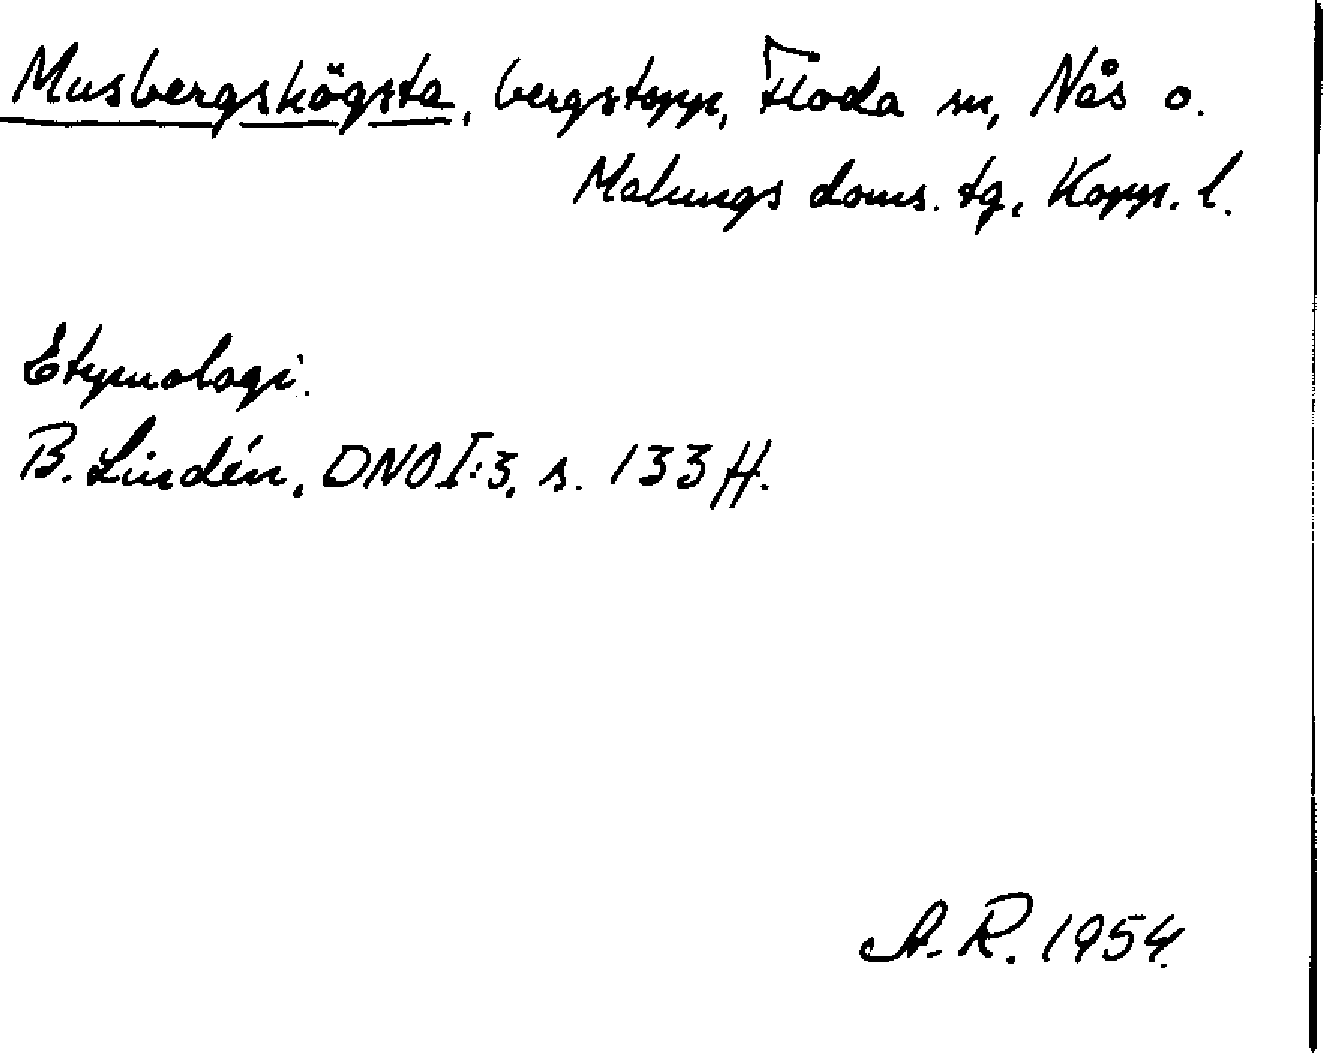 Musbergshögsta, bergstopp, Floda sn, Nås o.
Malungs doms. tg, Kopp. l.
Etymologi.
B. Lindén, DNOI:3, s. 133 ff.
A. R. 1954.